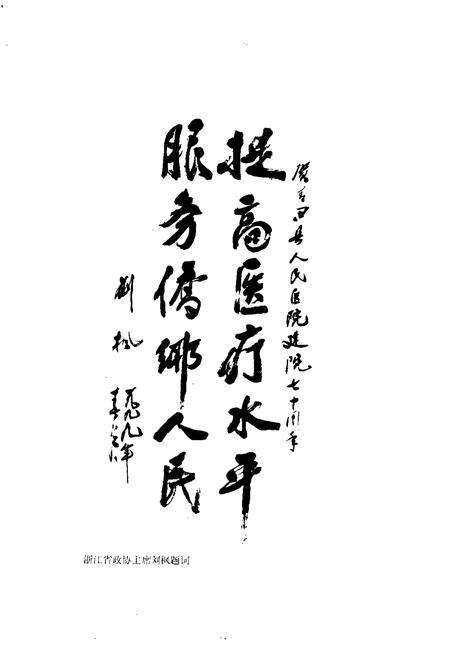 贺青田县人民医院建院七十周年
提高医疗水平
服务侨乡人民
刘枫
一九九九年
浙江省政协主席刘枫题词